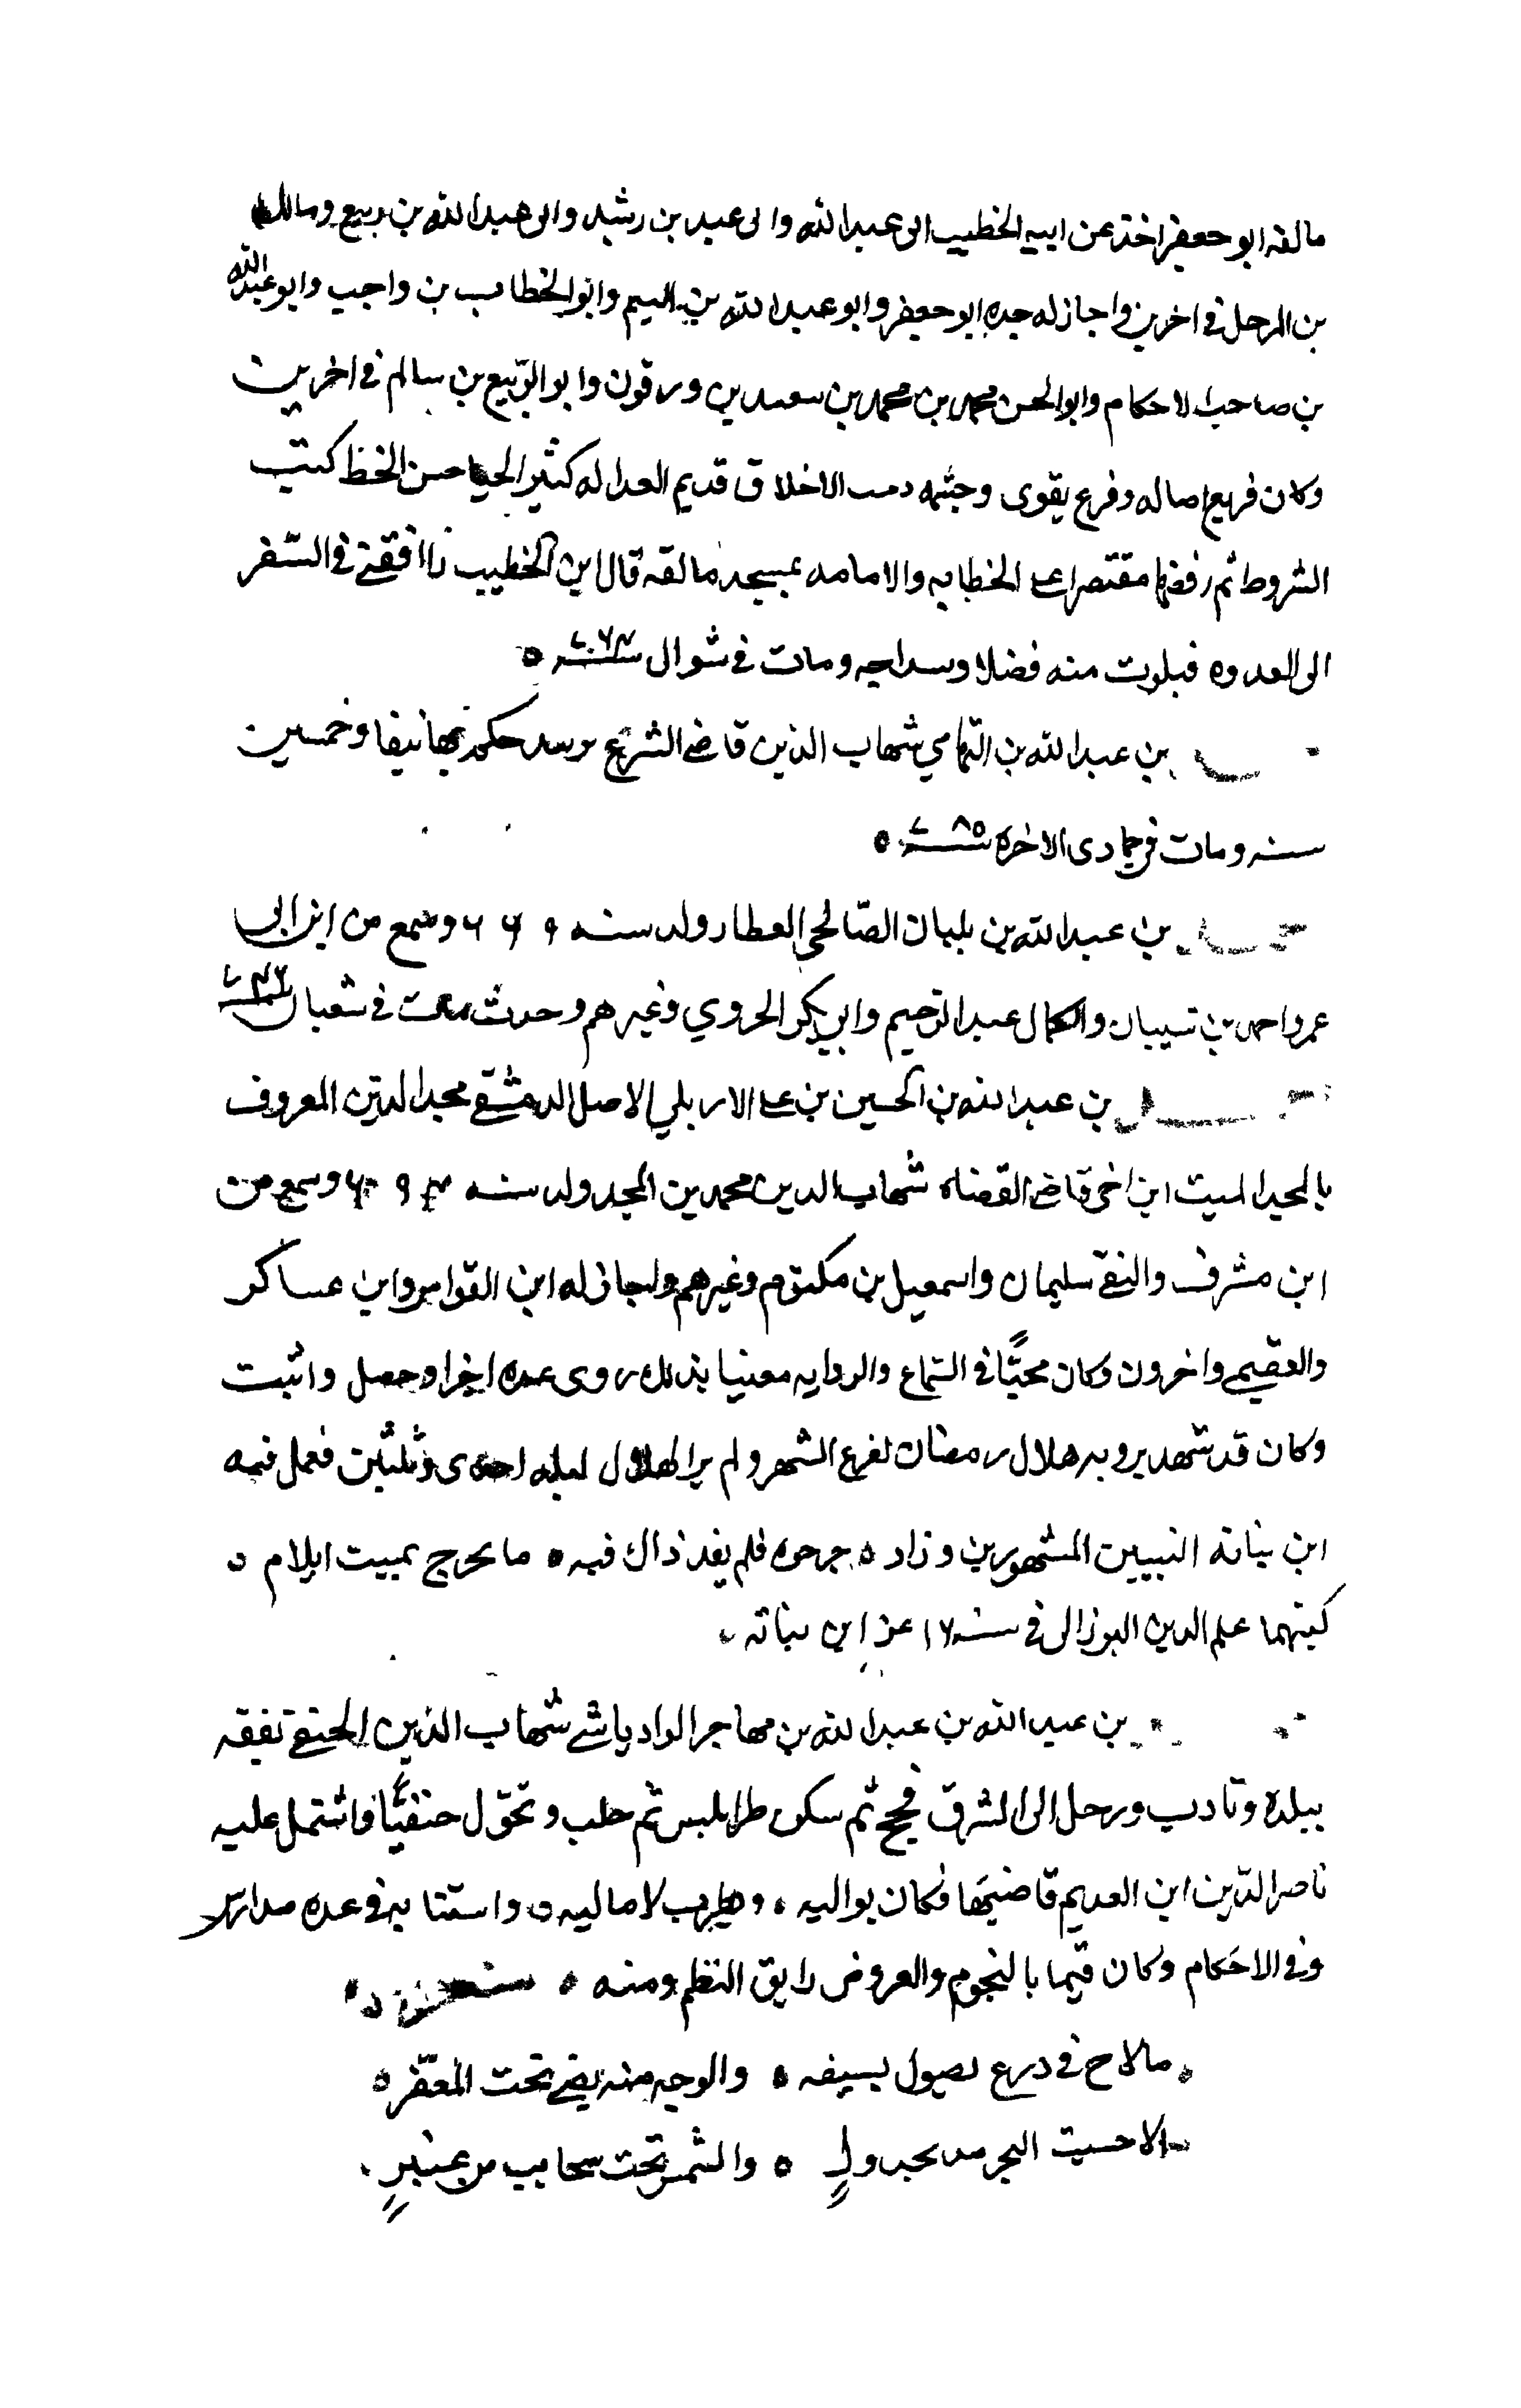 مالقه ابو جعفر اخذ عن ابيه الخطيب ابى عبد الله وابى عبيد بن رشيد وابى عبد الله بن ربيع ومالك
بن المرحل فى اخرين واجاز له جده ابو جعفر وابو عبد الله بن اليتيم وابو الخطاب بن واجب وابو عبد الله
بن صاحب الاحكام وابو الحسن محمد بن محمد بن سعيد بن ورقون وابو الربيع بن سالم فى اخرين
وكان فريع اصاله وفرع يقوى وحثمه دمث الاخلاق قديم العداله كثير الحيا حسن الخط كتب
الشروط ثم رفضها مقتصرا على الخطابه والامامه بمسجد مالقه قال ابن الخطيب ناافقنى فى السفر
الى العدوه فبلوت منه فضلا وسداجه ومات فى شوال سنة ٧٦٣
بن عبد الله بن التهامي شهاب الدين قاضى الشريع حكم بها نيفا وخمسين
سنه ومات فى جمادى الاخره سنة ٧٨٥
بن عبد الله بن بلبان الصالحى العطار ولد سنه ٦٦٩ وسمع من ابن ابى
عمر واحمد بن شيبان والكمال عبد الرحيم وابى بكر الهروي وغيرهم وحدث مات فى شعبان
بن عبد الله بن الحسين بن على الاربلي الاصل الدمشقى مجد الدين المعروف
بالمجد الميت ابن اخى قاضى القضاه شهاب الدين محمد بن المجد ولد سنه ٦٩٣ وسمع من
ابن مشرف والتقى سليمان واسمعيل بن مكتوم وغيرهم واجاز له ابن القواس وابن عساكر
والعقيمى واخرون وكان محبًّا فى السماع والروايه معنيا بذلك روى عده اجزا وحصل واثبت
وكان قد شهد برويه هلال رمضان لفرع الشهر ولم ير الهلال ليله احدى وثلثين فعمل فيه
ابن نباته البيتين المشهورين وزاد جرحوه فلم يفد ذاك فيه ما بجرح بميت ايلام
كتبهما علم الدين البرزالى فى سنه ١٧ عن ابن نباته
بن عبد الله بن عبد الله بن مهاجر الوادياشى شهاب الدين الحنفى تفقه
ببلده وتادب ورحل الى الشرق فحج ثم سكن طرابلس ثم حلب وتحول حنفيًّا فاشتمل عليه
ناصر الدين ابن العديم قاضيها فكان يواليه ويطرب لاماليه واستنابه فى عده مدارس
وفى الاحكام وكان قيما بالنجوم والعروض رايق النظم ومنه
مالاح فى درع يصول بسيفه والوجه منه يضى تحت المغفر
الا حسبت البحر مد بجدولٍ والشمس تحت سحايب من عنبرٍ